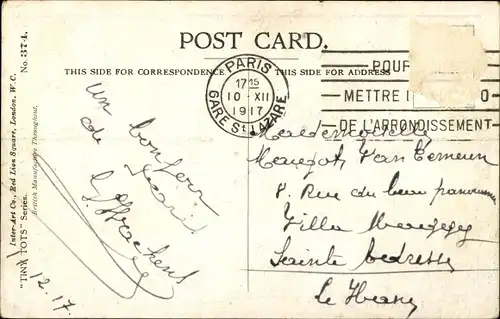 POST CARD.
THIS SIDE FOR CORRESPONDENCE
THIS SIDE FOR ADDRESS
PARIS
17 15
10 - XII
1917
GARE ST LAZARE
POUR
METTRE
DE L'ARRONDISSEMENT
Un bonjour
de Paris
12.17.
Mademoiselle
Margot Van
8 Rue du beau panorama
Villa
Sainte Adresse
Le Havre
"TINY TOTS" Series.
Inter-Art Co., Red Lion Square, London, W.C.
British Manufacture Throughout.
No. 374.